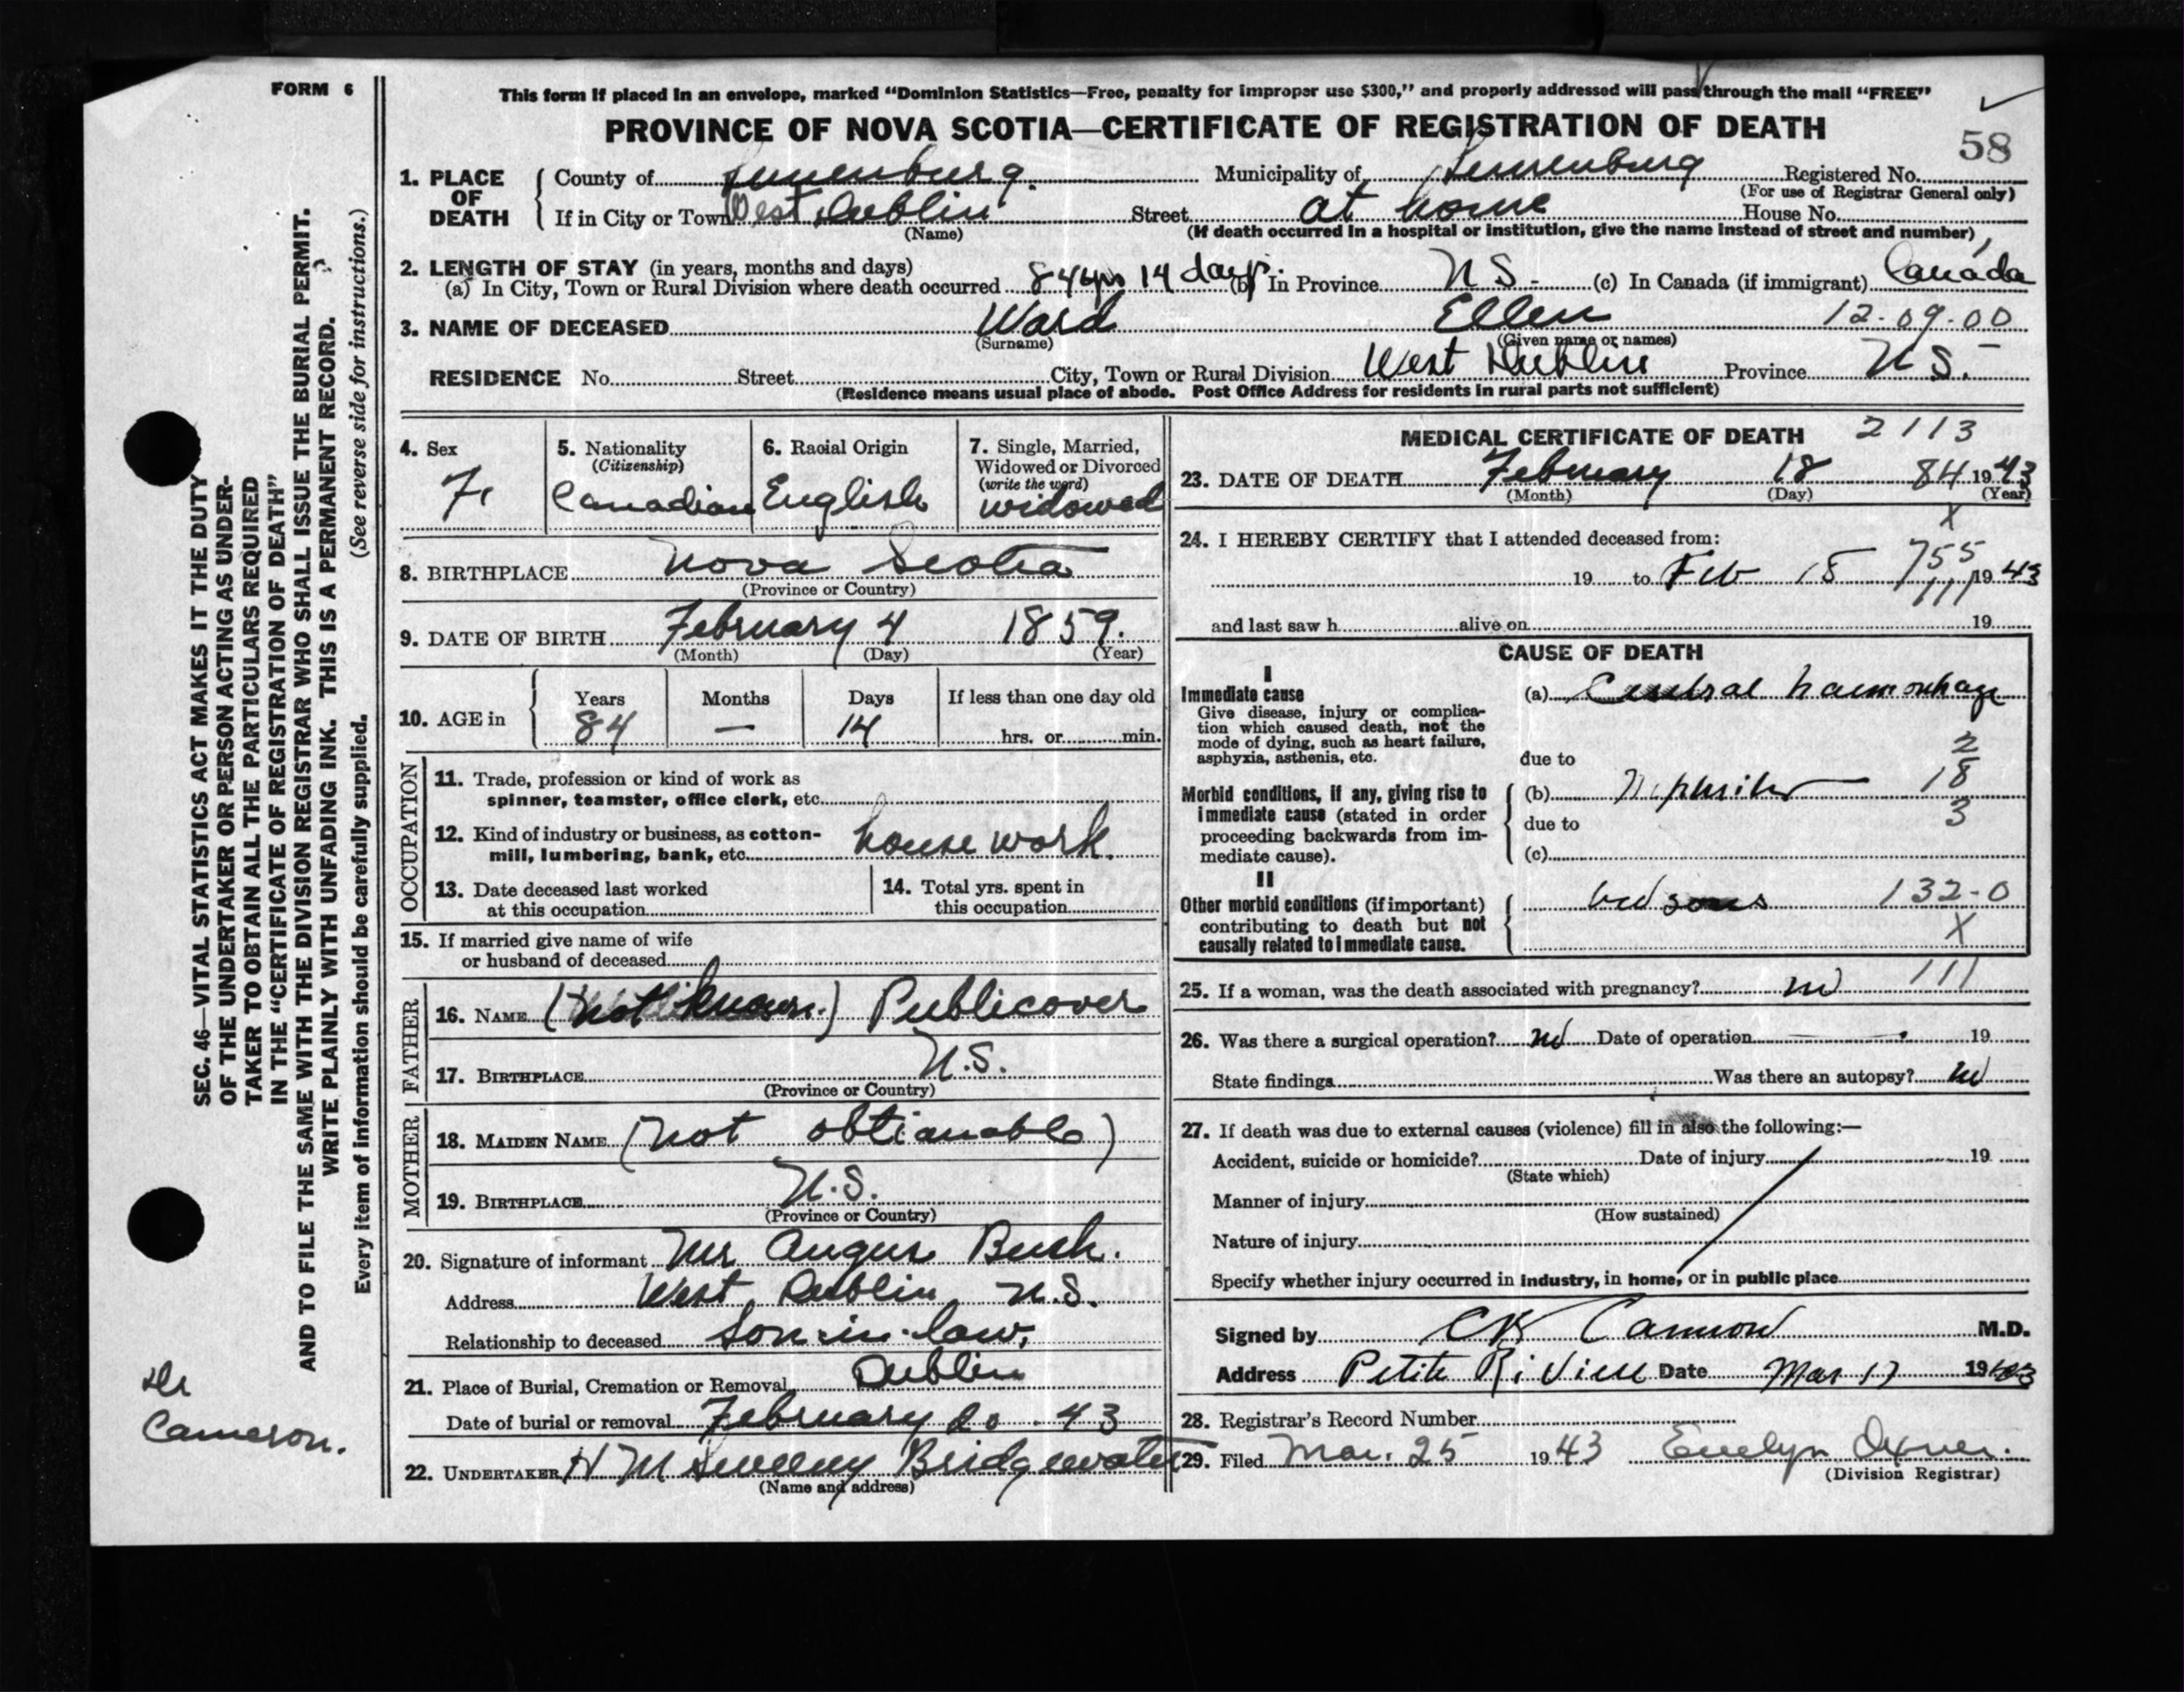 FORM 6
This form if placed in an envelope, marked "Dominion Statistics—Free, penalty for improper use $300," and properly addressed will pass through the mail "FREE"
PROVINCE OF NOVA SCOTIA—CERTIFICATE OF REGISTRATION OF DEATH
58
1. PLACE OF DEATH
County of Lunenburg. Municipality of Lunenburg Registered No.
(For use of Registrar General only)
If in City or Town West Dublin Street at home House No.
(Name) (If death occurred in a hospital or institution, give the name instead of street and number)
2. LENGTH OF STAY (in years, months and days)
(a) In City, Town or Rural Division where death occurred 84 yrs 14 days. (b) In Province N S - (c) In Canada (if immigrant) Canada
3. NAME OF DECEASED Ward Ellen 12-09-00
(Surname) (Given name or names)
RESIDENCE No. Street City, Town or Rural Division West Dublin Province N S.
(Residence means usual place of abode. Post Office Address for residents in rural parts not sufficient)
4. Sex
F.
5. Nationality
(Citizenship)
Canadian
6. Racial Origin
English
7. Single, Married,
Widowed or Divorced
(write the word)
widowed
8. BIRTHPLACE Nova Scotia
(Province or Country)
9. DATE OF BIRTH February 4 1859.
(Month) (Day) (Year)
10. AGE in
Years Months Days If less than one day old
84 — 14 hrs. or min.
OCCUPATION
11. Trade, profession or kind of work as
spinner, teamster, office clerk, etc.
12. Kind of industry or business, as cotton-
mill, lumbering, bank, etc. house work.
13. Date deceased last worked
at this occupation
14. Total yrs. spent in
this occupation
15. If married give name of wife
or husband of deceased
FATHER
16. NAME (not known.) Publicover
17. BIRTHPLACE N.S.
(Province or Country)
MOTHER
18. MAIDEN NAME (not obtianable)
19. BIRTHPLACE N.S.
(Province or Country)
20. Signature of informant Mr Angus Bush.
Address West Dublin N.S.
Relationship to deceased Son-in-law,
21. Place of Burial, Cremation or Removal Dublin
Date of burial or removal February 20 - 43
22. UNDERTAKER H M Sweeny Bridgewater
(Name and address)
MEDICAL CERTIFICATE OF DEATH 2113
23. DATE OF DEATH February 18 84 1943
(Month) (Day) (Year)
X
24. I HEREBY CERTIFY that I attended deceased from:
755
19 to Feb 18 1943
111
and last saw h alive on 19
CAUSE OF DEATH
I
Immediate cause
Give disease, injury or complica-
tion which caused death, not the
mode of dying, such as heart failure,
asphyxia, asthenia, etc.
(a) Cerebral haemorrhage
due to
Morbid conditions, if any, giving rise to
immediate cause (stated in order
proceeding backwards from im-
mediate cause).
2
(b) Nephritis 18
due to 3
(c)
II
Other morbid conditions (if important)
contributing to death but not
causally related to immediate cause.
bed sores 132-0
X
25. If a woman, was the death associated with pregnancy? no 111
26. Was there a surgical operation? no Date of operation 19
State findings Was there an autopsy? no
27. If death was due to external causes (violence) fill in also the following:—
Accident, suicide or homicide? Date of injury 19
(State which)
Manner of injury
(How sustained)
Nature of injury
Specify whether injury occurred in industry, in home, or in public place
Signed by C K Cameron M.D.
Address Petite Riviere Date Mar 17 1943
28. Registrar's Record Number
29. Filed Mar. 25 1943 Evelyn Oxner.
(Division Registrar)
SEC. 46—VITAL STATISTICS ACT MAKES IT THE DUTY
OF THE UNDERTAKER OR PERSON ACTING AS UNDER-
TAKER TO OBTAIN ALL THE PARTICULARS REQUIRED
IN THE "CERTIFICATE OF REGISTRATION OF DEATH"
AND TO FILE THE SAME WITH THE DIVISION REGISTRAR WHO SHALL ISSUE THE BURIAL PERMIT.
WRITE PLAINLY WITH UNFADING INK. THIS IS A PERMANENT RECORD.
Every item of information should be carefully supplied. (See reverse side for instructions.)
Dr
Cameron.